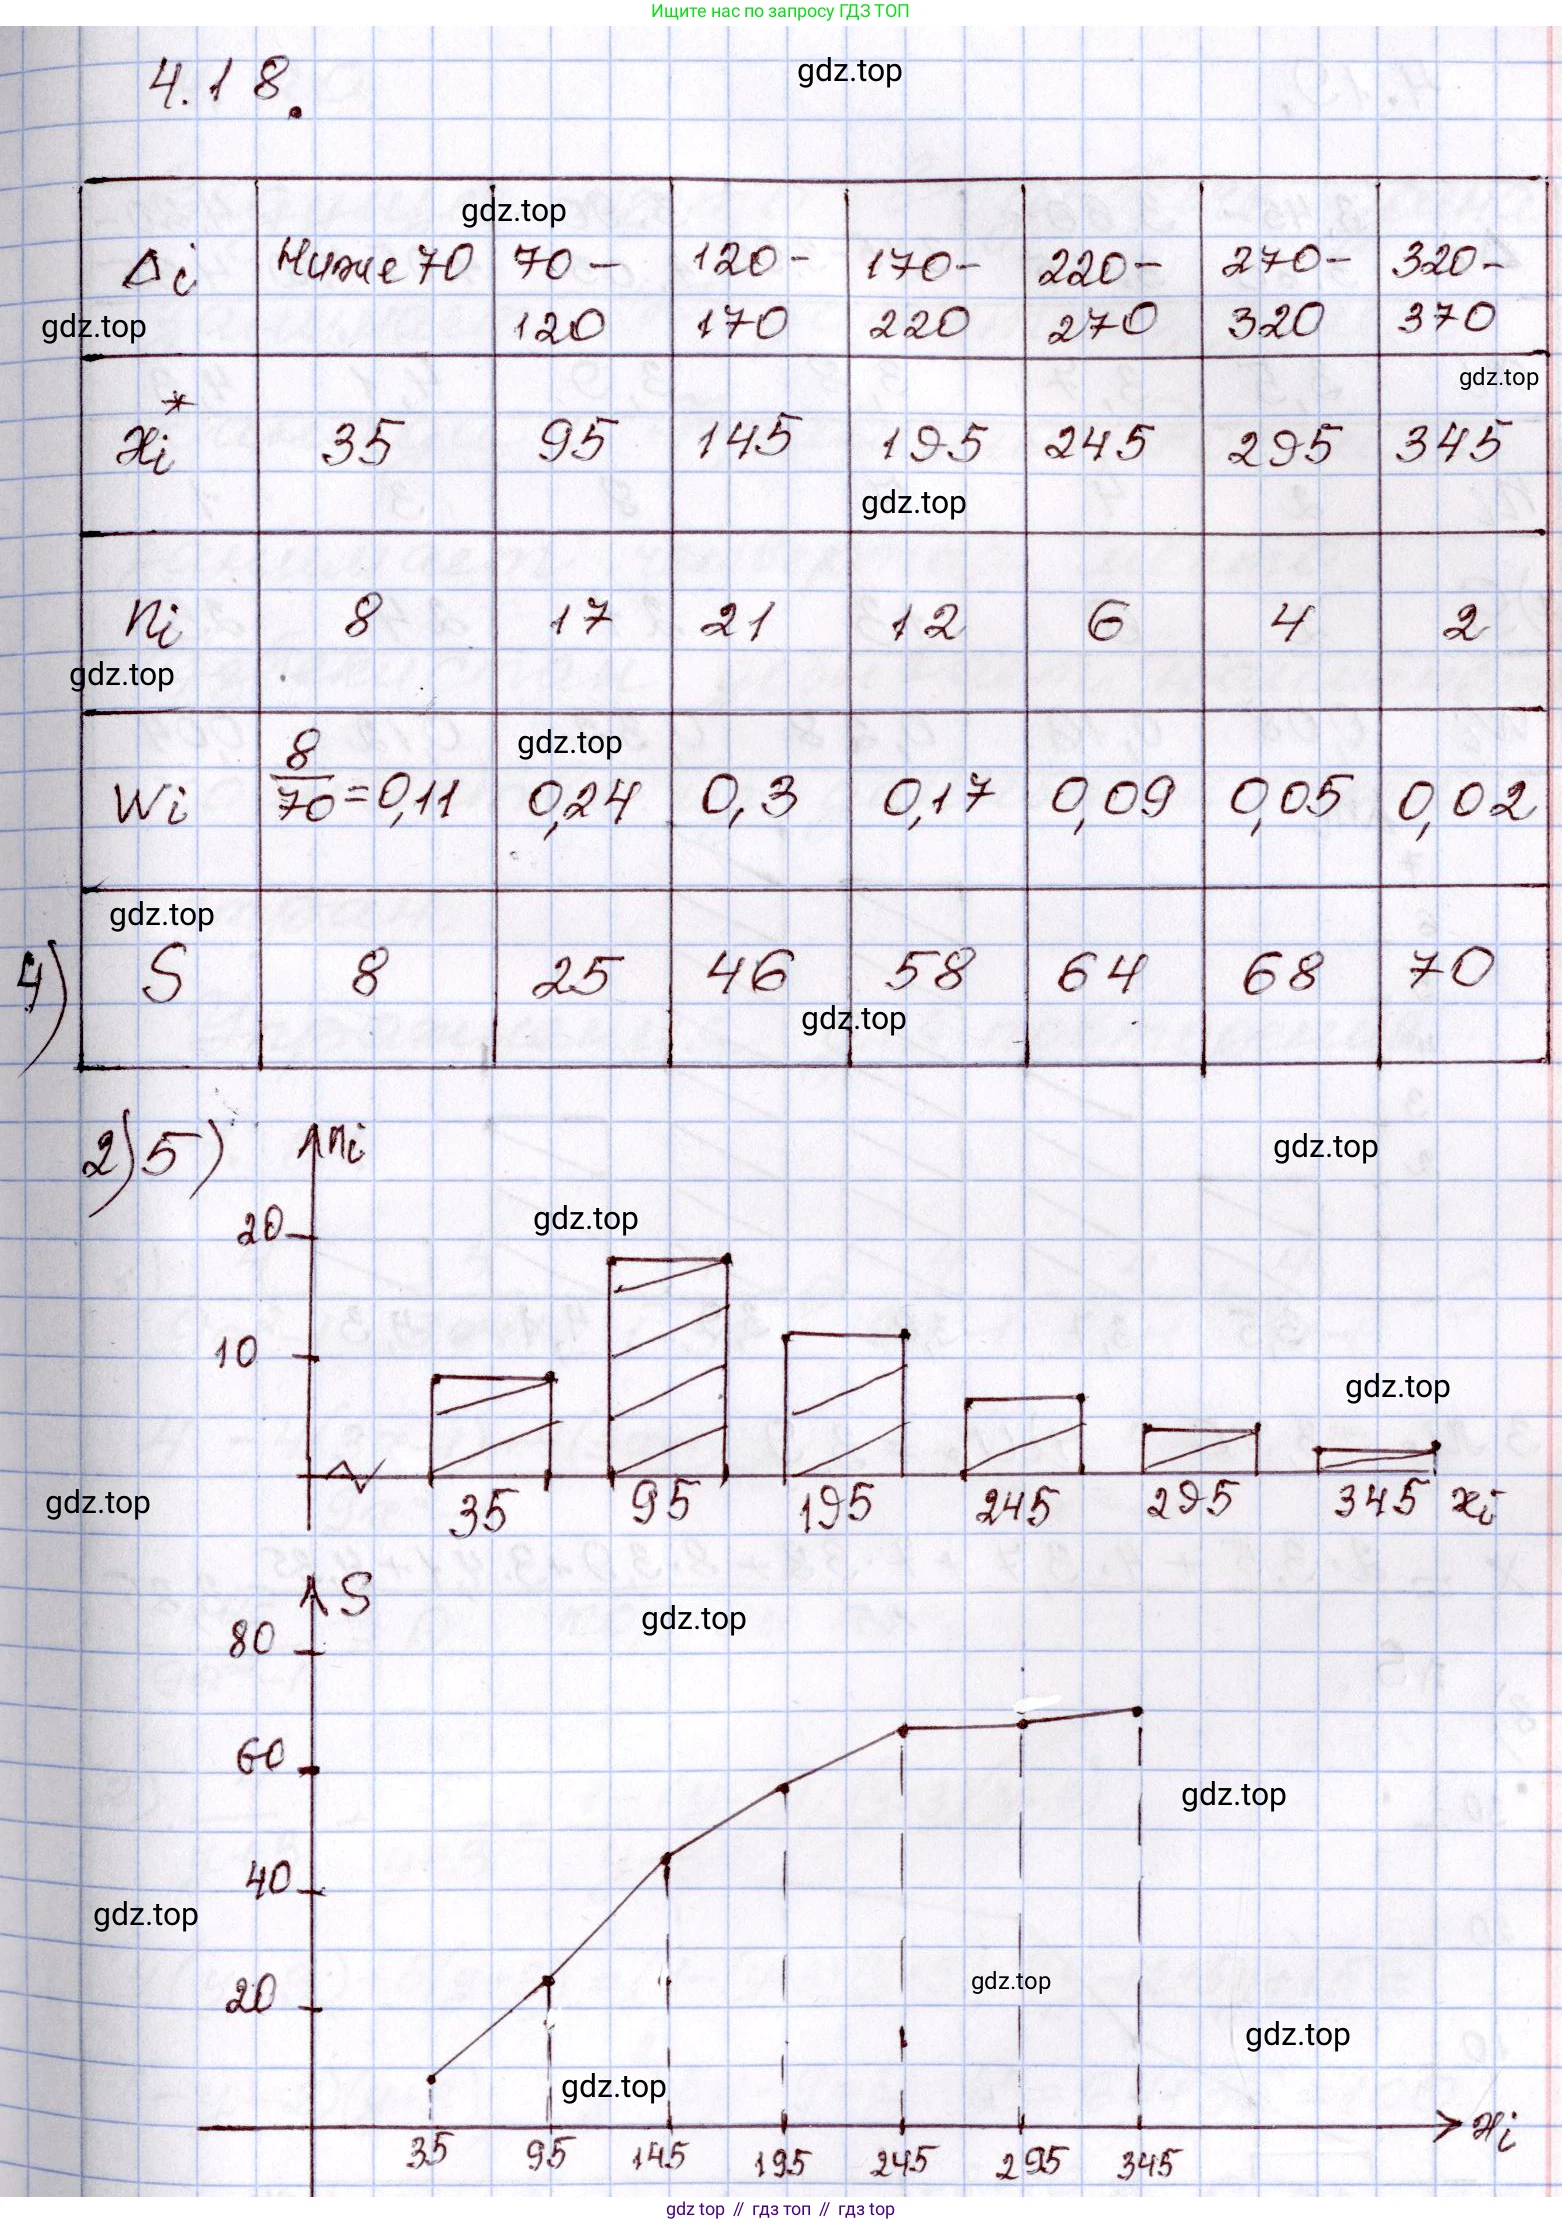 Ищите нас по запросу ГДЗ ТОП
4.18.
gdz.top
gdz.top
Δi Ниже 70 70– 120– 170– 220– 270– 320–
120 170 220 270 320 370
gdz.top
gdz.top
xi* 35 95 145 195 245 295 345
gdz.top
ni 8 17 21 12 6 4 2
gdz.top
gdz.top
Wi 8/70=0,11 0,24 0,3 0,17 0,09 0,05 0,02
gdz.top
4) S 8 25 46 58 64 68 70
gdz.top
2)5) ni
gdz.top
20
gdz.top
10
gdz.top
gdz.top
35 95 195 245 295 345 xi
S
gdz.top
80
60
gdz.top
40
gdz.top
gdz.top
20
gdz.top
gdz.top
35 95 145 195 245 295 345 xi
gdz top // гдз топ // гдз top